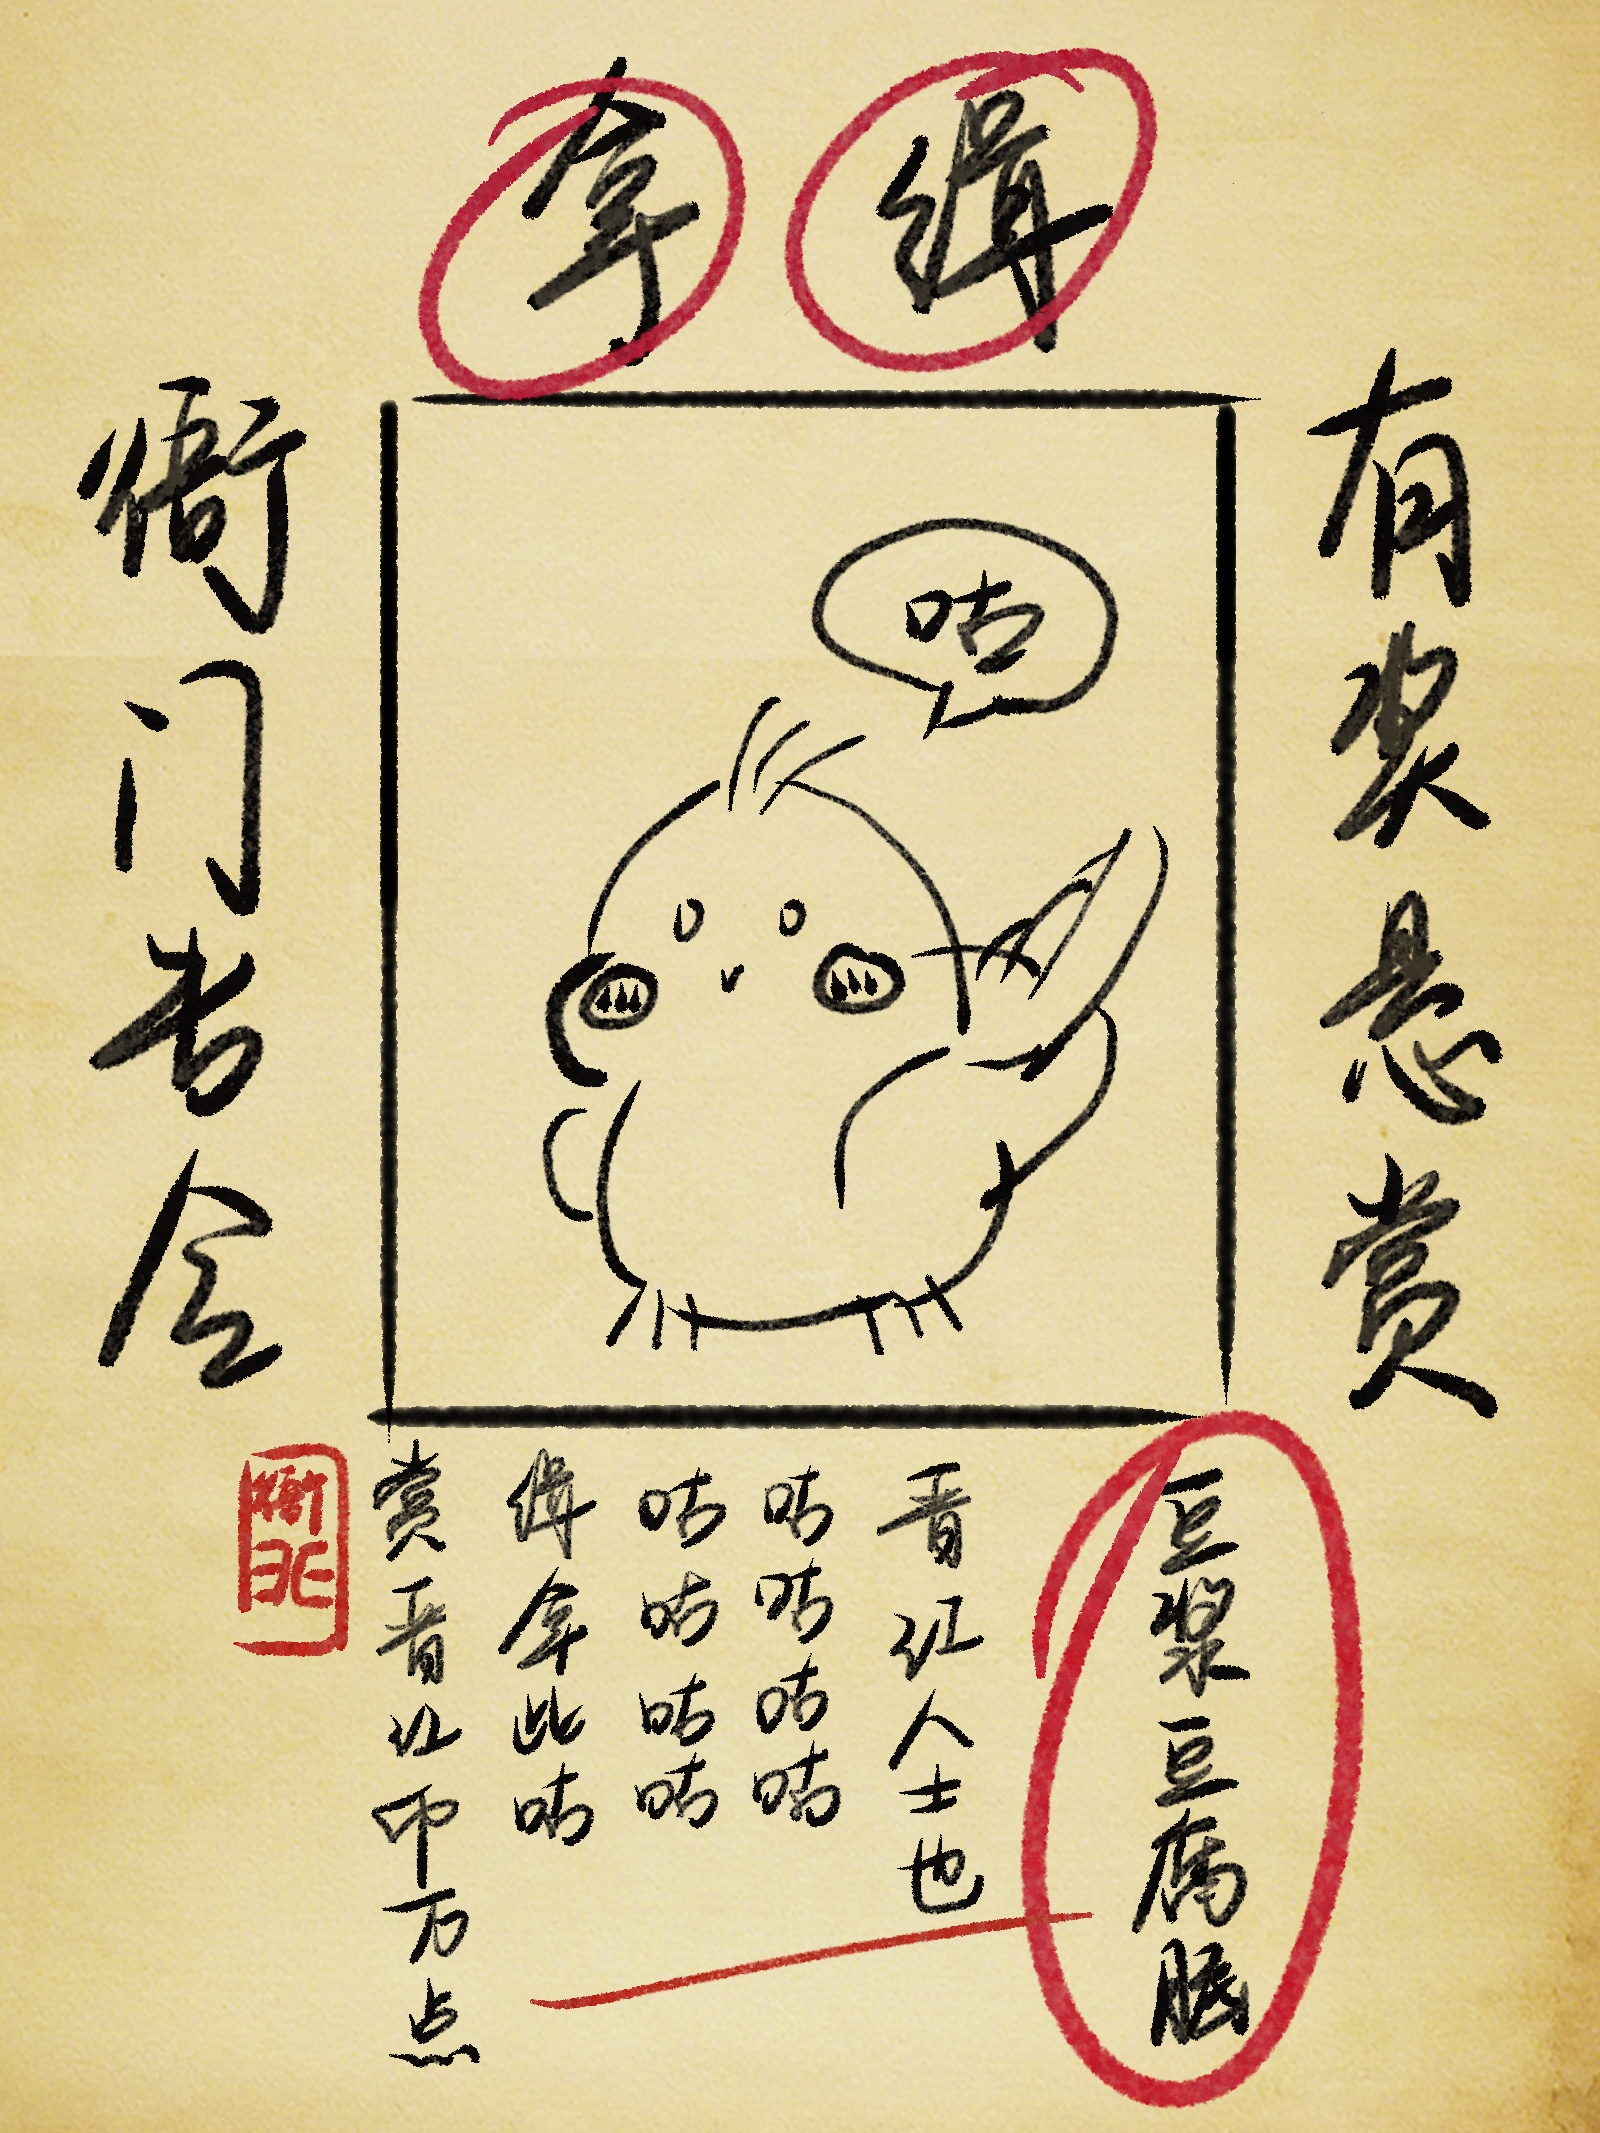 缉拿
有奖悬赏
咕
衙门告令
豆浆豆腐脑
晋江人士也
咕咕咕咕
咕咕咕咕
缉拿此咕
赏晋江币万点
衙